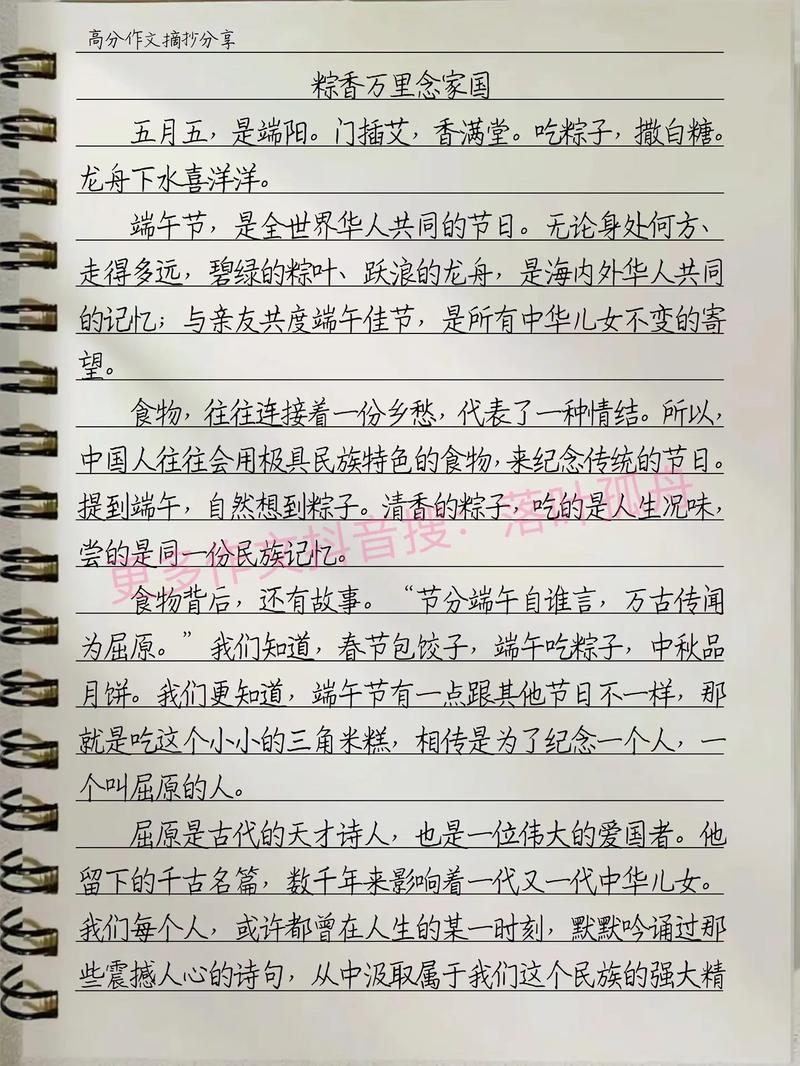 高分作文摘抄分享
粽香万里念家国
五月五，是端阳。门插艾，香满堂。吃粽子，撒白糖。
龙舟下水喜洋洋。
端午节，是全世界华人共同的节日。无论身处何方、
走得多远，碧绿的粽叶、跃浪的龙舟，是海内外华人共同
的记忆；与亲友共度端午佳节，是所有中华儿女不变的寄
望。
食物，往往连接着一份乡愁，代表了一种情结。所以，
中国人往往会用极具民族特色的食物，来纪念传统的节日。
提到端午，自然想到粽子。清香的粽子，吃的是人生况味，
尝的是同一份民族记忆。
更多作文抖音搜：落叶孤舟
食物背后，还有故事。“节分端午自谁言，万古传闻
为屈原。”我们知道，春节包饺子，端午吃粽子，中秋品
月饼。我们更知道，端午节有一点跟其他节日不一样，那
就是吃这个小小的三角米糕，相传是为了纪念一个人，一
个叫屈原的人。
屈原是古代的天才诗人，也是一位伟大的爱国者。他
留下的千古名篇，数千年来影响着一代又一代中华儿女。
我们每个人，或许都曾在人生的某一时刻，默默吟诵过那
些震撼人心的诗句，从中汲取属于我们这个民族的强大精